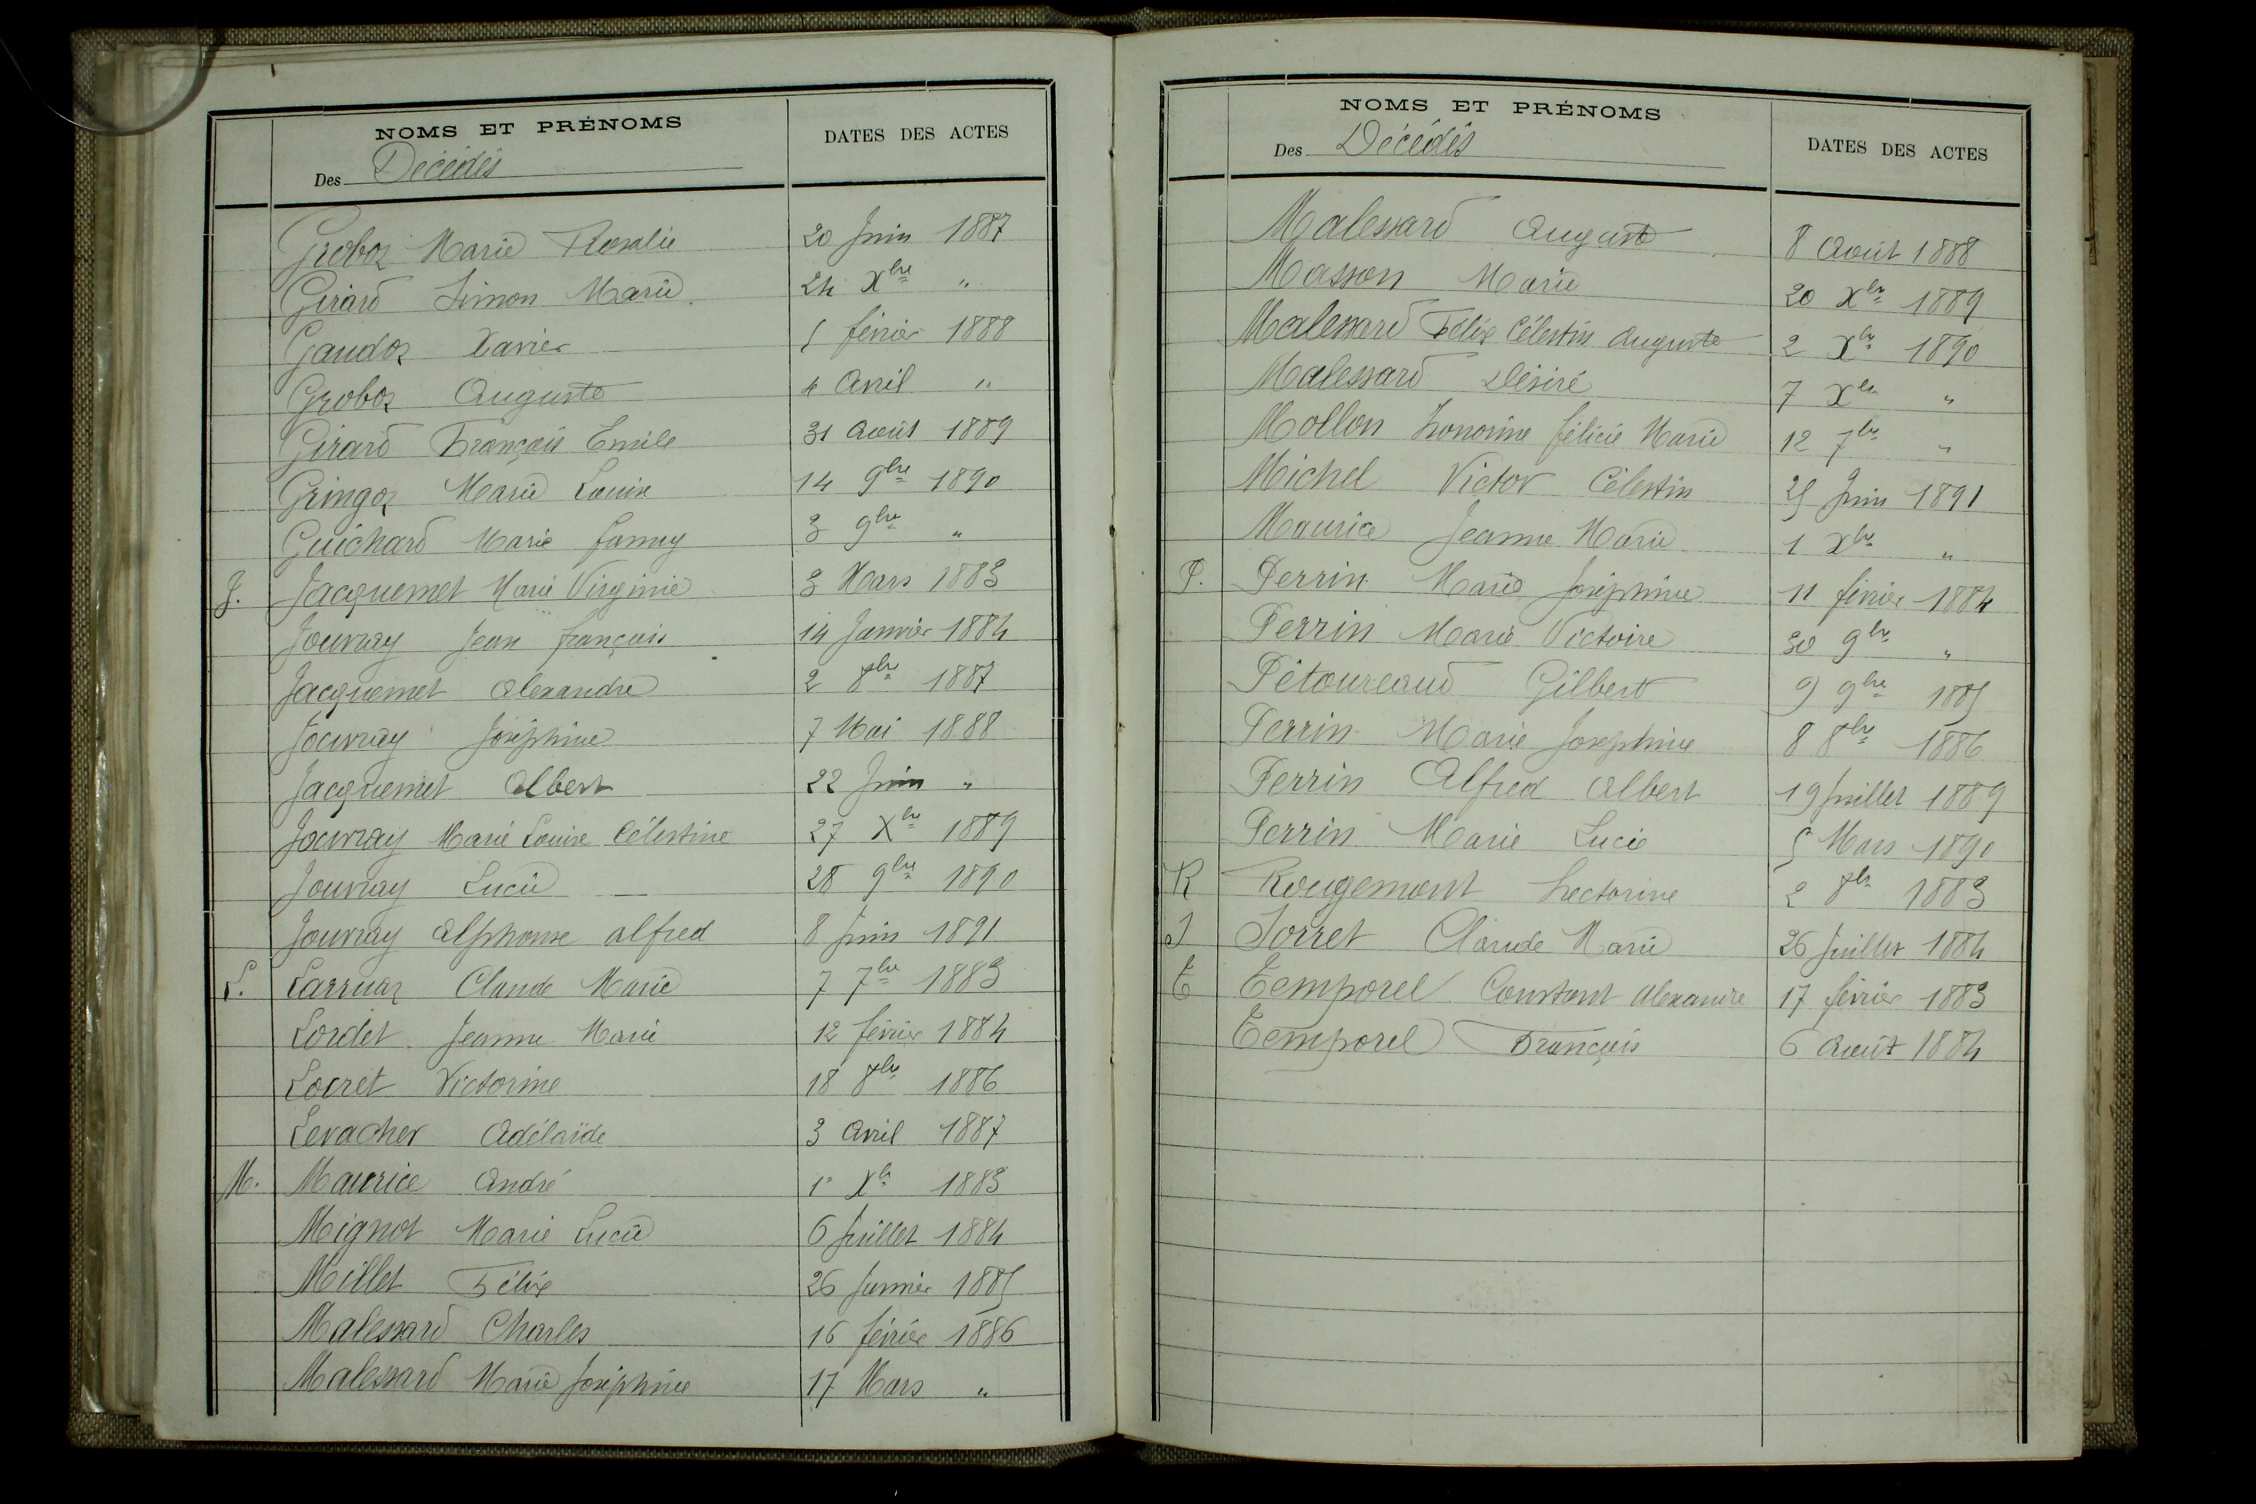 NOMS ET PRÉNOMS
DATES DES ACTES
Des Décédés
Groboz Marie Rosalie 20 Juin 1887
Girard Simon Marie 24 Xbre "
Gaudoz Xavier 5 février 1888
Groboz Auguste 4 Avril "
Girard François Emile 31 Août 1889
Gringoz Marie Louise 14 9bre 1890
Guichard Marie fanny 3 9bre "
J. Jacquemet Marie Virginie 3 Mars 1883
Jouvray Jean françois 14 Janvier 1884
Jacquemet Alexandre 2 8bre 1887
Jouvray Joséphine 7 Mai 1888
Jacquemet Albert 22 Juin "
Jouvray Marie Louise Célestine 27 Xbre 1889
Jouvray Lucie 28 9bre 1890
Jouvray Alphonse Alfred 8 Juin 1891
L. Larruaz Claude Marie 7 7bre 1883
Lordet Jeanne Marie 12 février 1884
Locret Victorine 18 8bre 1886
Levacher Adélaïde 3 Avril 1887
M. Maurice André 1er Xbr 1883
Mignot Marie Lucie 6 Juillet 1884
Millet Félix 26 Janvier 1885
Malessard Charles 16 février 1886
Malessard Marie Joséphine 17 Mars "
NOMS ET PRÉNOMS
DATES DES ACTES
Des Décédés
Malessard Auguste 8 Août 1888
Masson Marie 20 Xbre 1889
Malessard Félix Célestin Auguste 2 Xbre 1890
Malessard Désiré 7 Xbre "
Mollon honorine félicie Marie 12 7bre "
Michel Victor Célestin 25 Juin 1891
Maurice Jeanne Marie 1 Xbre "
P. Perrin Marie Joséphine 11 février 1884
Perrin Marie Victoire 30 9bre "
Pétoureaud Gilbert 9 9bre 1885
Perrin Marie Joséphine 8 8bre 1886
Perrin Alfred Albert 19 Juillet 1889
Perrin Marie Lucie 5 Mars 1890
R Rougemont hectorine 2 8bre 1883
S Sorret Claude Marie 26 Juillet 1884
T Temporel Constant Alexandre 17 février 1883
Temporel François 6 Août 1884